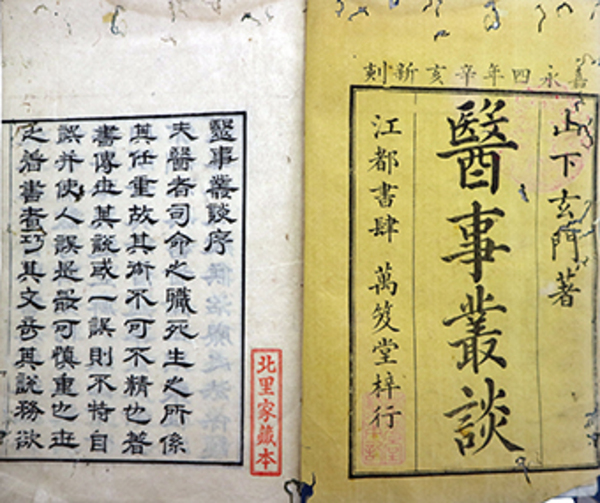 嘉永四年辛亥新刻
山下玄門著
醫事叢談
江都書肆 萬笈堂梓行
北里家藏本
醫事叢談序
夫醫者司命之職死生之所係
其任重故其術不可不精也著
書傳世其說或一誤則不特自
誤并使人誤是最可慎重也世
之著書者巧其文奇其說務欲